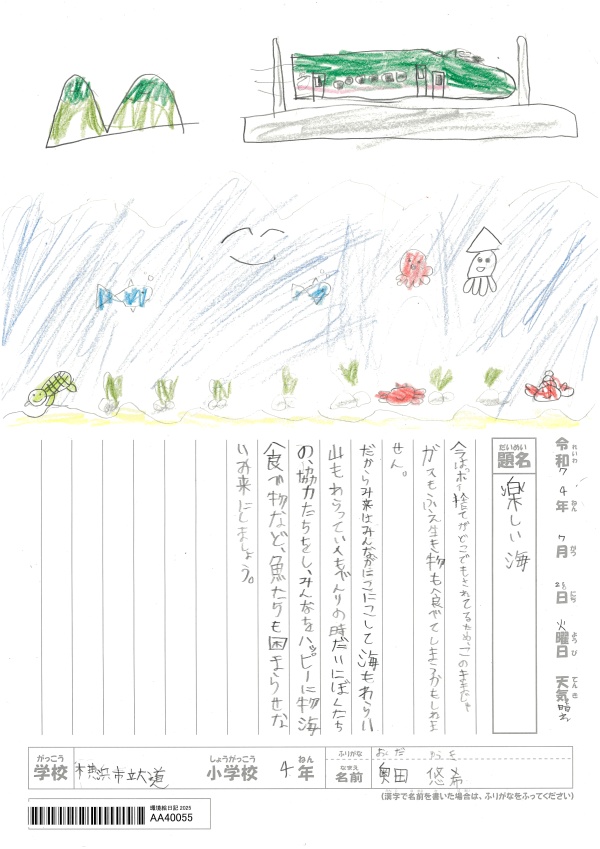 令和7 4年 7月 28日 火曜日 天気
れいわ ねん がつ にち ようび てんき
だいめい
題名 楽しい海
今はポイ捨てがどこでもされてるため、このままだと
ガスもふえ生き物も食べてしまうかもしれま
せん。
だからみ来はみんながにこにこして海もわらい
山もわらっていつもべんりの時だいにぼくたち
の、協力たちをし、みんなをハッピーに物海
食べ物など、魚たちも困まらせな
いみ来にしましょう。
がっこう しょうがっこう ねん ふりがな
学校 横浜市立大道 小学校 4年
なまえ
名前 奥田 悠希
(漢字で名前を書いた場合は、ふりがなをふってください)
環境絵日記 2025
AA40055